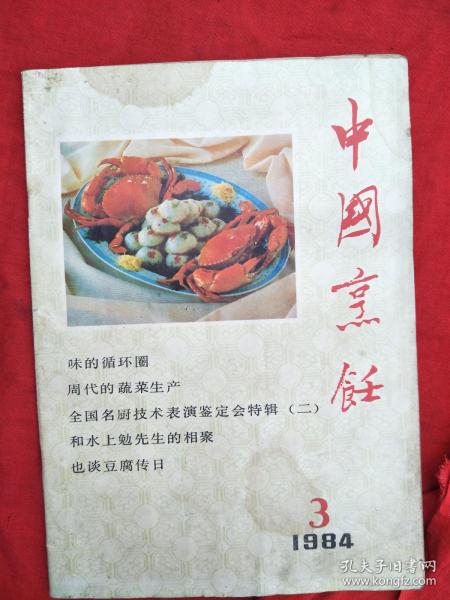 中國烹飪
味的循环圈
周代的蔬菜生产
全国名厨技术表演鉴定会特辑（二）
和水上勉先生的相聚
也谈豆腐传日
3
1984
孔夫子旧书网
www.kongfz.com